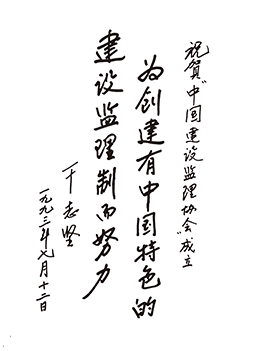 祝贺“中国建设监理协会”成立
为创建有中国特色的
建设监理制而努力
干志坚
一九九三年七月十二日